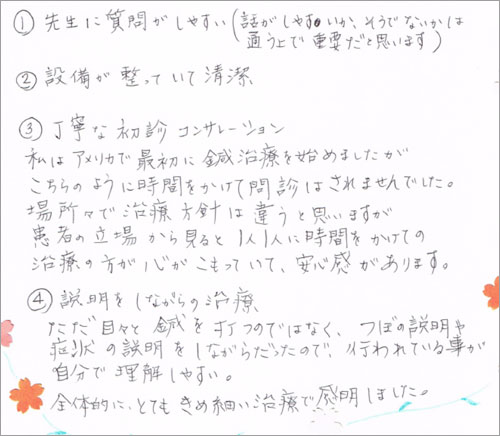 ① 先生に質問がしやすい(話がしやすいか、そうでないかは
通う上で重要だと思います)
② 設備が整っていて清潔
③ 丁寧な初診コンサレーション
私はアメリカで最初に鍼治療を始めましたが
こちらのように時間をかけて問診はされませんでした。
場所々で治療方針は違うと思いますが
患者の立場から見ると1人1人に時間をかけての
治療の方が心がこもっていて、安心感があります。
④ 説明をしながらの治療
ただ目々と鍼を打つのではなく、つぼの説明や
症状の説明をしながらだったので、行われている事が
自分で理解しやすい。
全体的に、とてもきめ細い治療で感明しました。